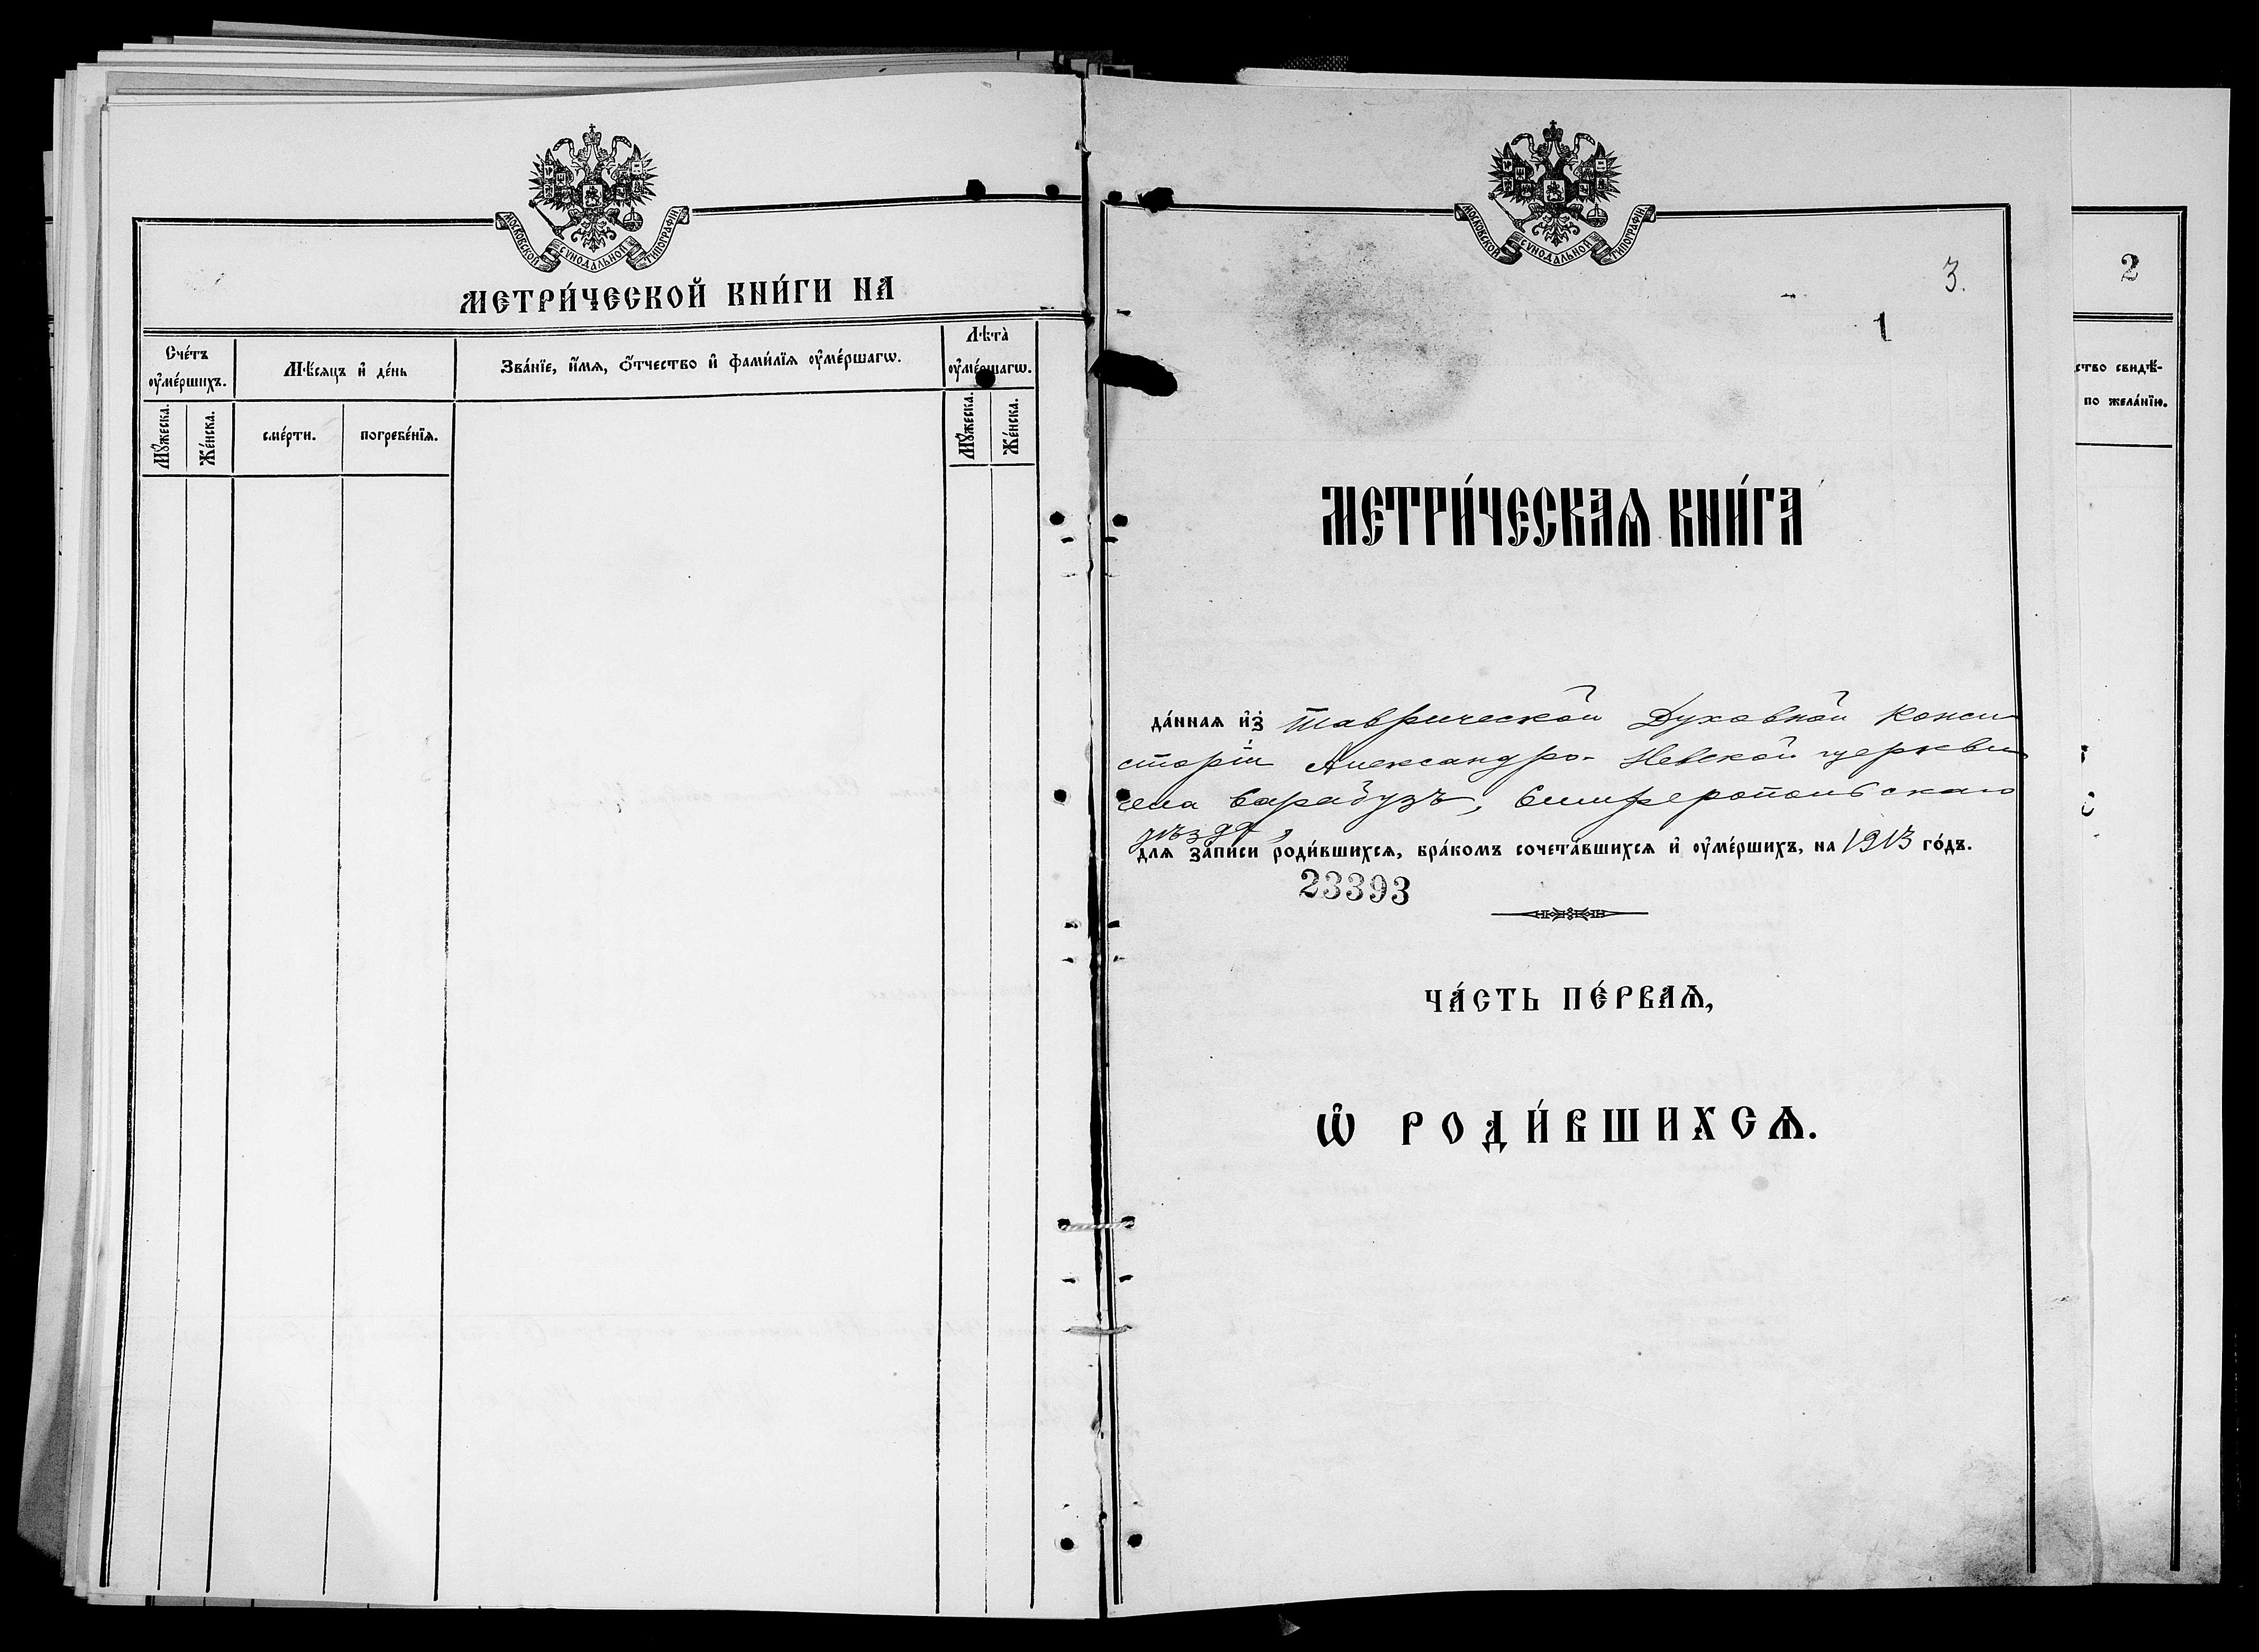 МОСКОВСКОЙ СѴНОДАЛЬНОЙ ТИПОГРАФІИ.
МЕТРИ́ЧЕСКОЙ КНИ́ГИ НА
Сче́тъ ᲂу҆ме́ршихъ.
Мѣ́сяцъ и҆ де́нь
Зва́нїе, и҆́мѧ, ѻ҆́тчество и҆ фами́лїѧ ᲂу҆ме́ршагѡ.
Лѣта̀ ᲂу҆ме́ршагѡ.
Мꙋ́жеска.
Же́нска.
сме́рти.
погребе́нїѧ.
Мꙋ́жеска.
Же́нска.
МОСКОВСКОЙ СѴНОДАЛЬНОЙ ТИПОГРАФІИ.
3.
1
МЕТРИ́ЧЕСКАѦ КНИ́ГА
да́ннаѧ и҆з̾ Таврической Духовной Конси
сторіи Александро-Невской церкви
села Сарабузъ, Симферопольскаго
уѣзда,
для за́писи роди́вшихсѧ, бра́комъ сочета́вшихсѧ и҆ ᲂу҆ме́ршихъ, на 1913 го́дъ.
23393
ЧА́СТЬ ПЕ́РВАѦ,
Ѡ҆ РОДИ́ВШИХСѦ.
2
ство свидѣ́-
по жела́нїю.